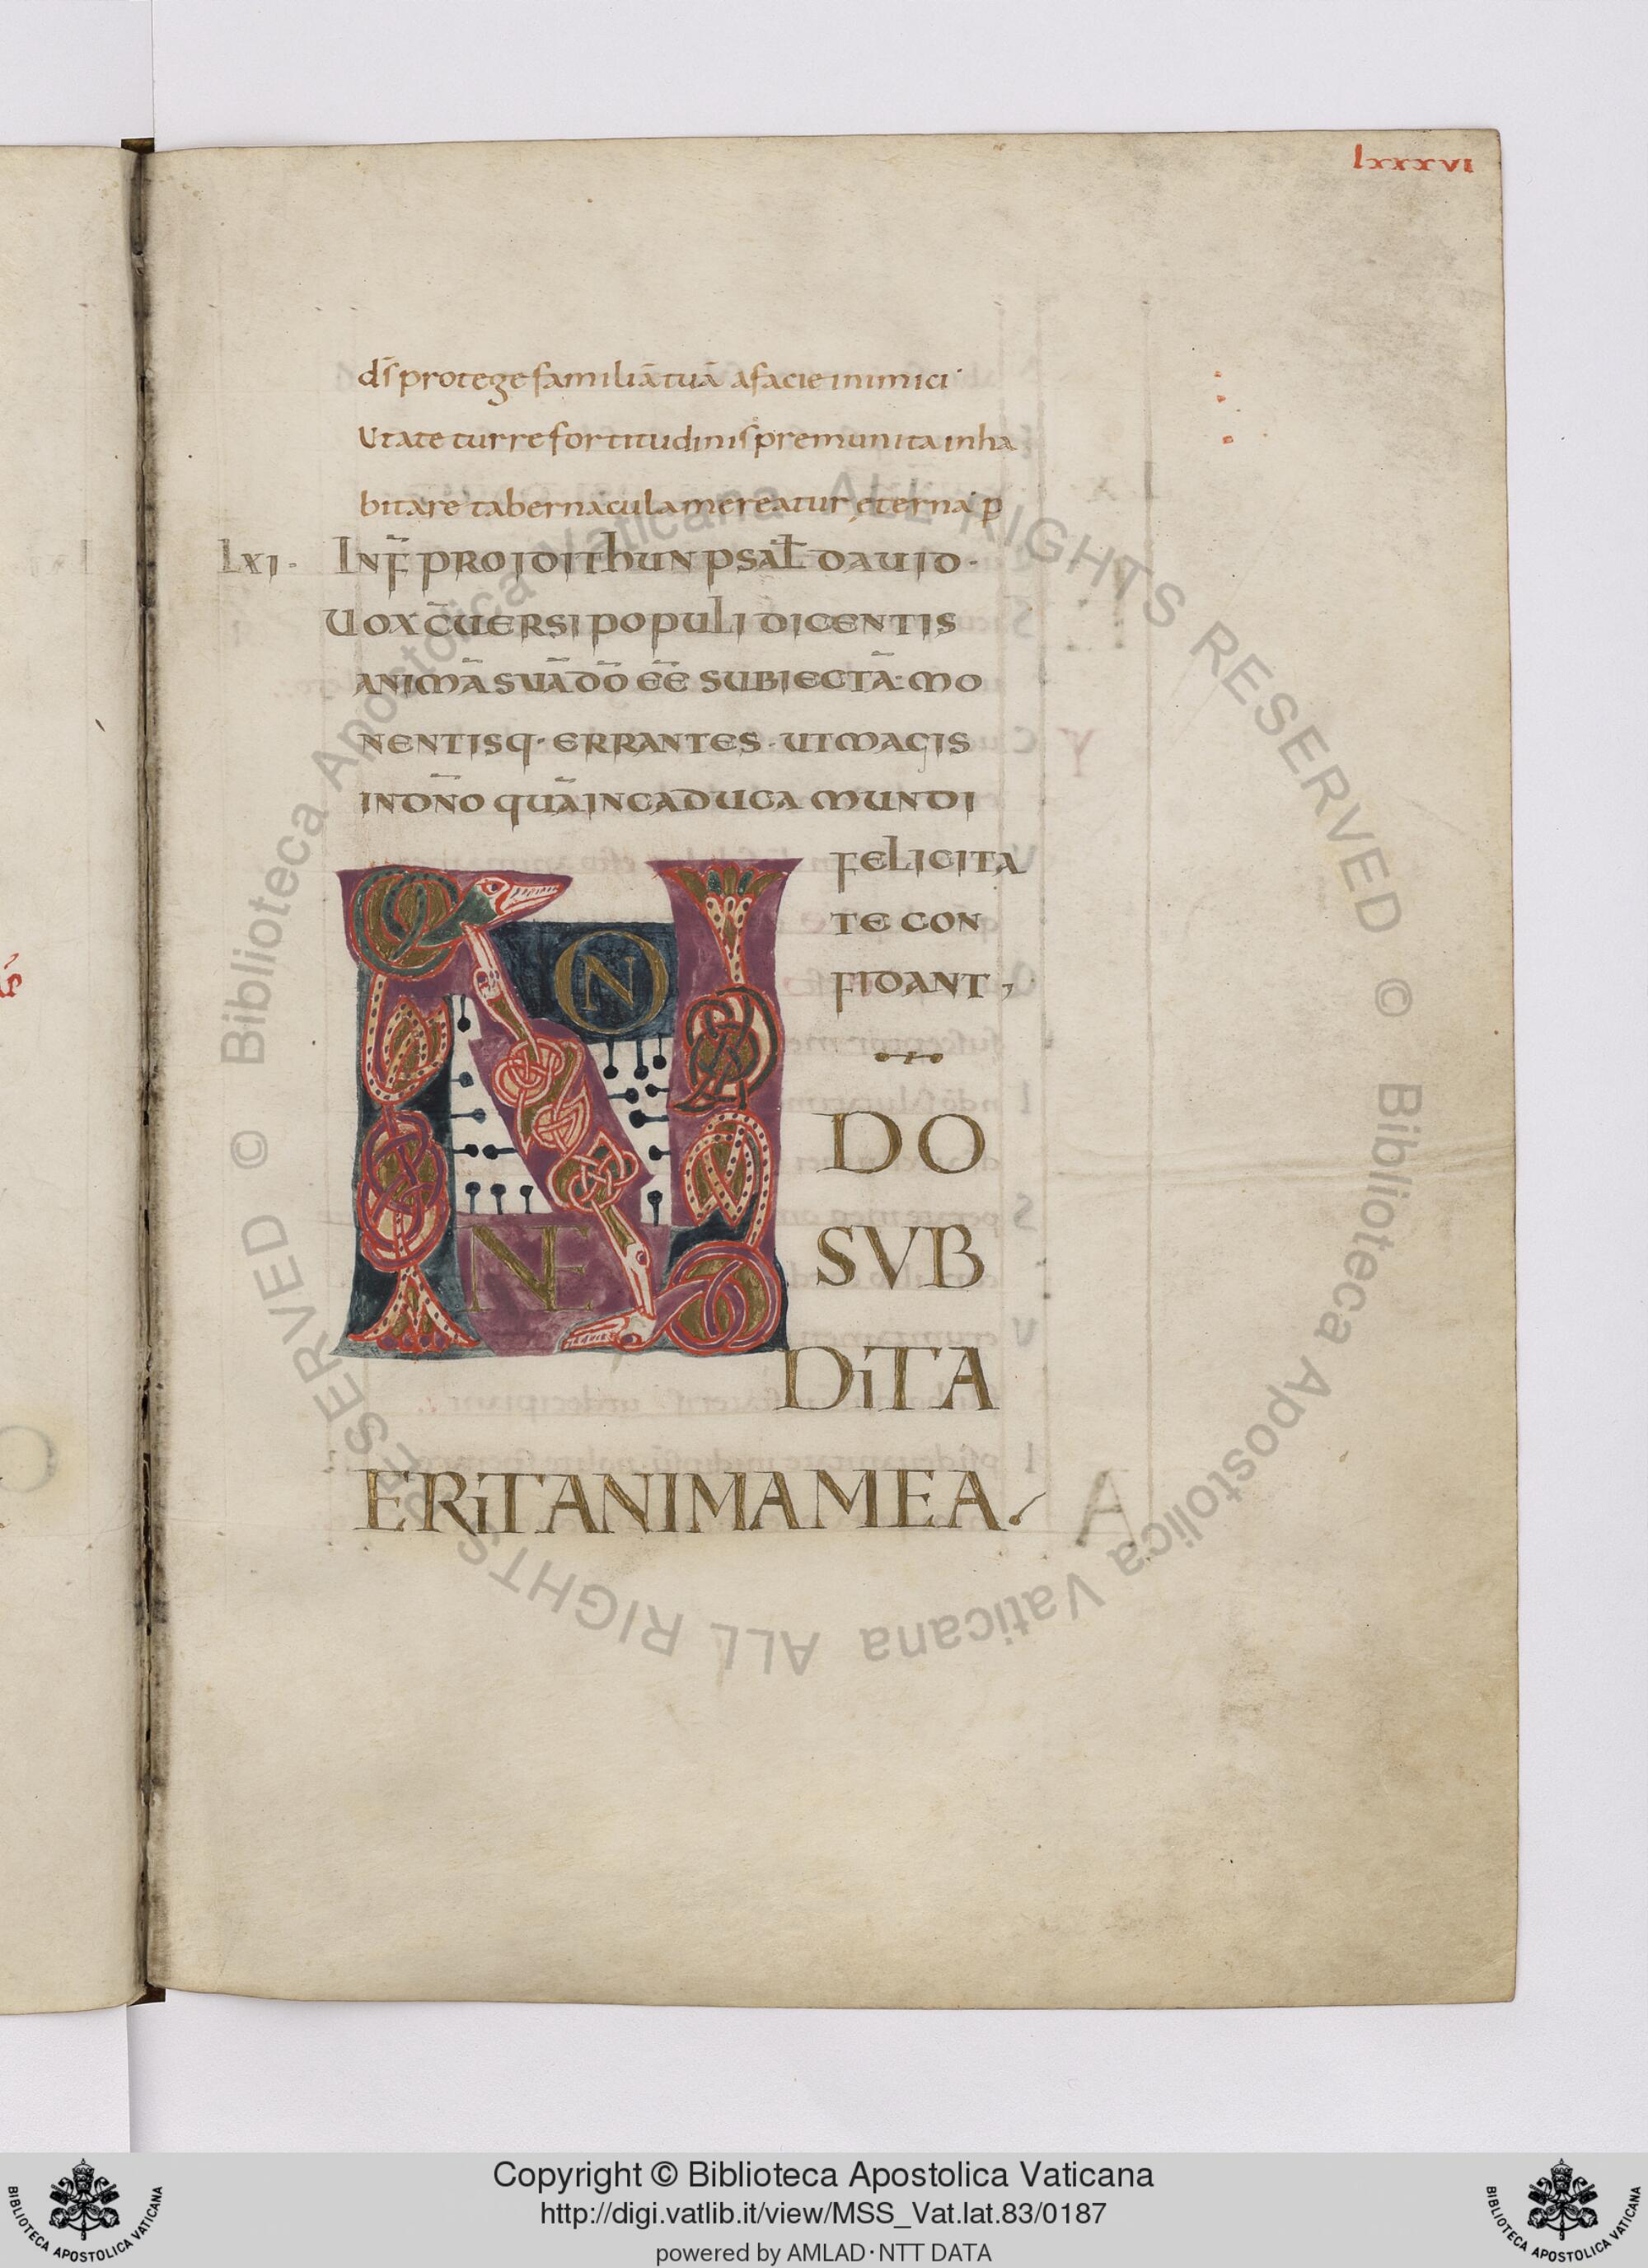 lxxxvi
dс̄ protege familiā tuā a facie inimici
Ut a te turre fortitudinis premunita inha
bitare tabernacula mereatur ęterna p̄
Lxi· INF̄ PRO IDITHUN PSAL̄ DAUID·
UOX C̄UERSI POPULI DICENTIS
ANIMĀ SUĀ DŌ ĒE SUBIECTĀ· MO
NENTISQ· ERRANTES· UT MAGIS
IN DN̄O QUĀ IN CADUCA MUNDI
FELICITA
TE CON
FIDANT,
NON
NE
DO
SVB
DiTA
ERiT ANIMA MEA
Copyright © Biblioteca Apostolica Vaticana
http://digi.vatlib.it/view/MSS_Vat.lat.83/0187
powered by AMLAD·NTT DATA
BIBLIOTECA APOSTOLICA VATICANA
BIBLIOTECA APOSTOLICA VATICANA
© Biblioteca Apostolica Vaticana ALL RIGHTS RESERVED © Biblioteca Apostolica Vaticana ALL RIGHTS RESERVED